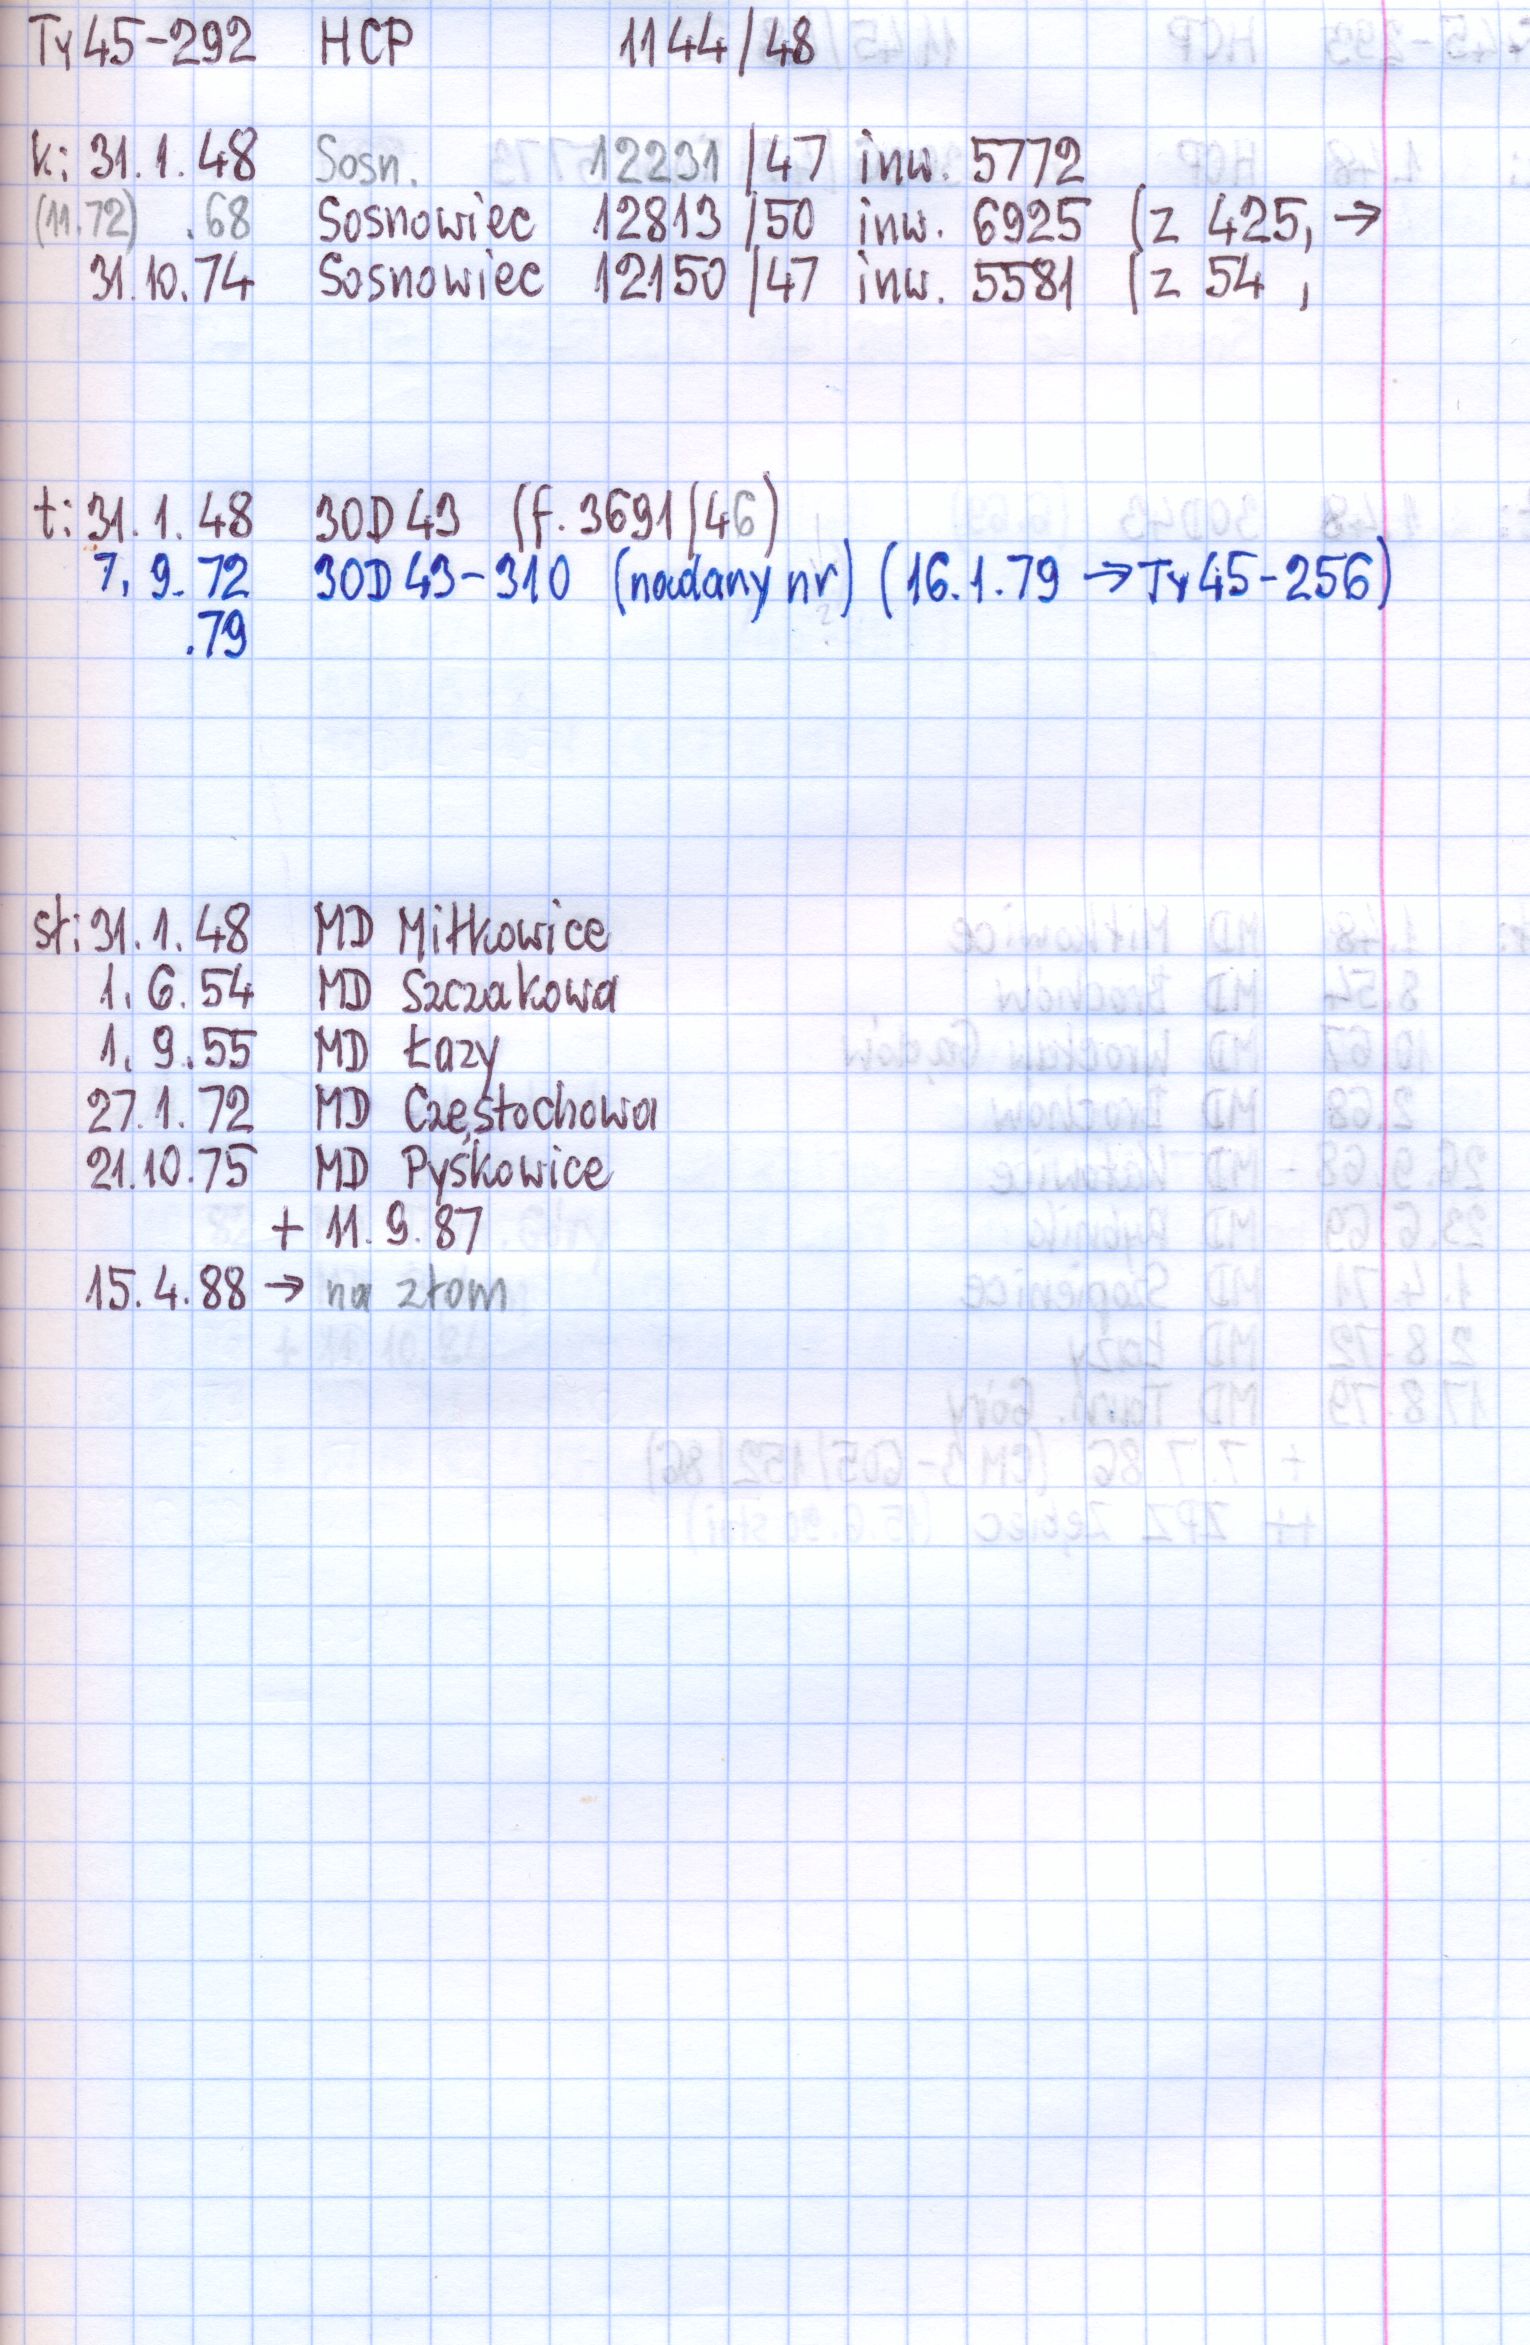 Ty45-292 HCP 1144/48
k: 31.1.48 Sosn. 12231/47 inw. 5772
(11.72) .68 Sosnowiec 12813/50 inw. 6925 (z 425, →
31.10.74 Sosnowiec 12150/47 inw. 5581 (z 54 ,
t: 31.1.48 30D43 (f. 3691/46)
7.9.72 30D43-310 (nadany nr) (16.1.79 → Ty45-256)
.79
st: 31.1.48 MD Miłkowice
1.6.54 MD Szczakowa
1.9.55 MD Łazy
27.1.72 MD Częstochowa
21.10.75 MD Pyskowice
+ 11.9.87
15.4.88 → na złom